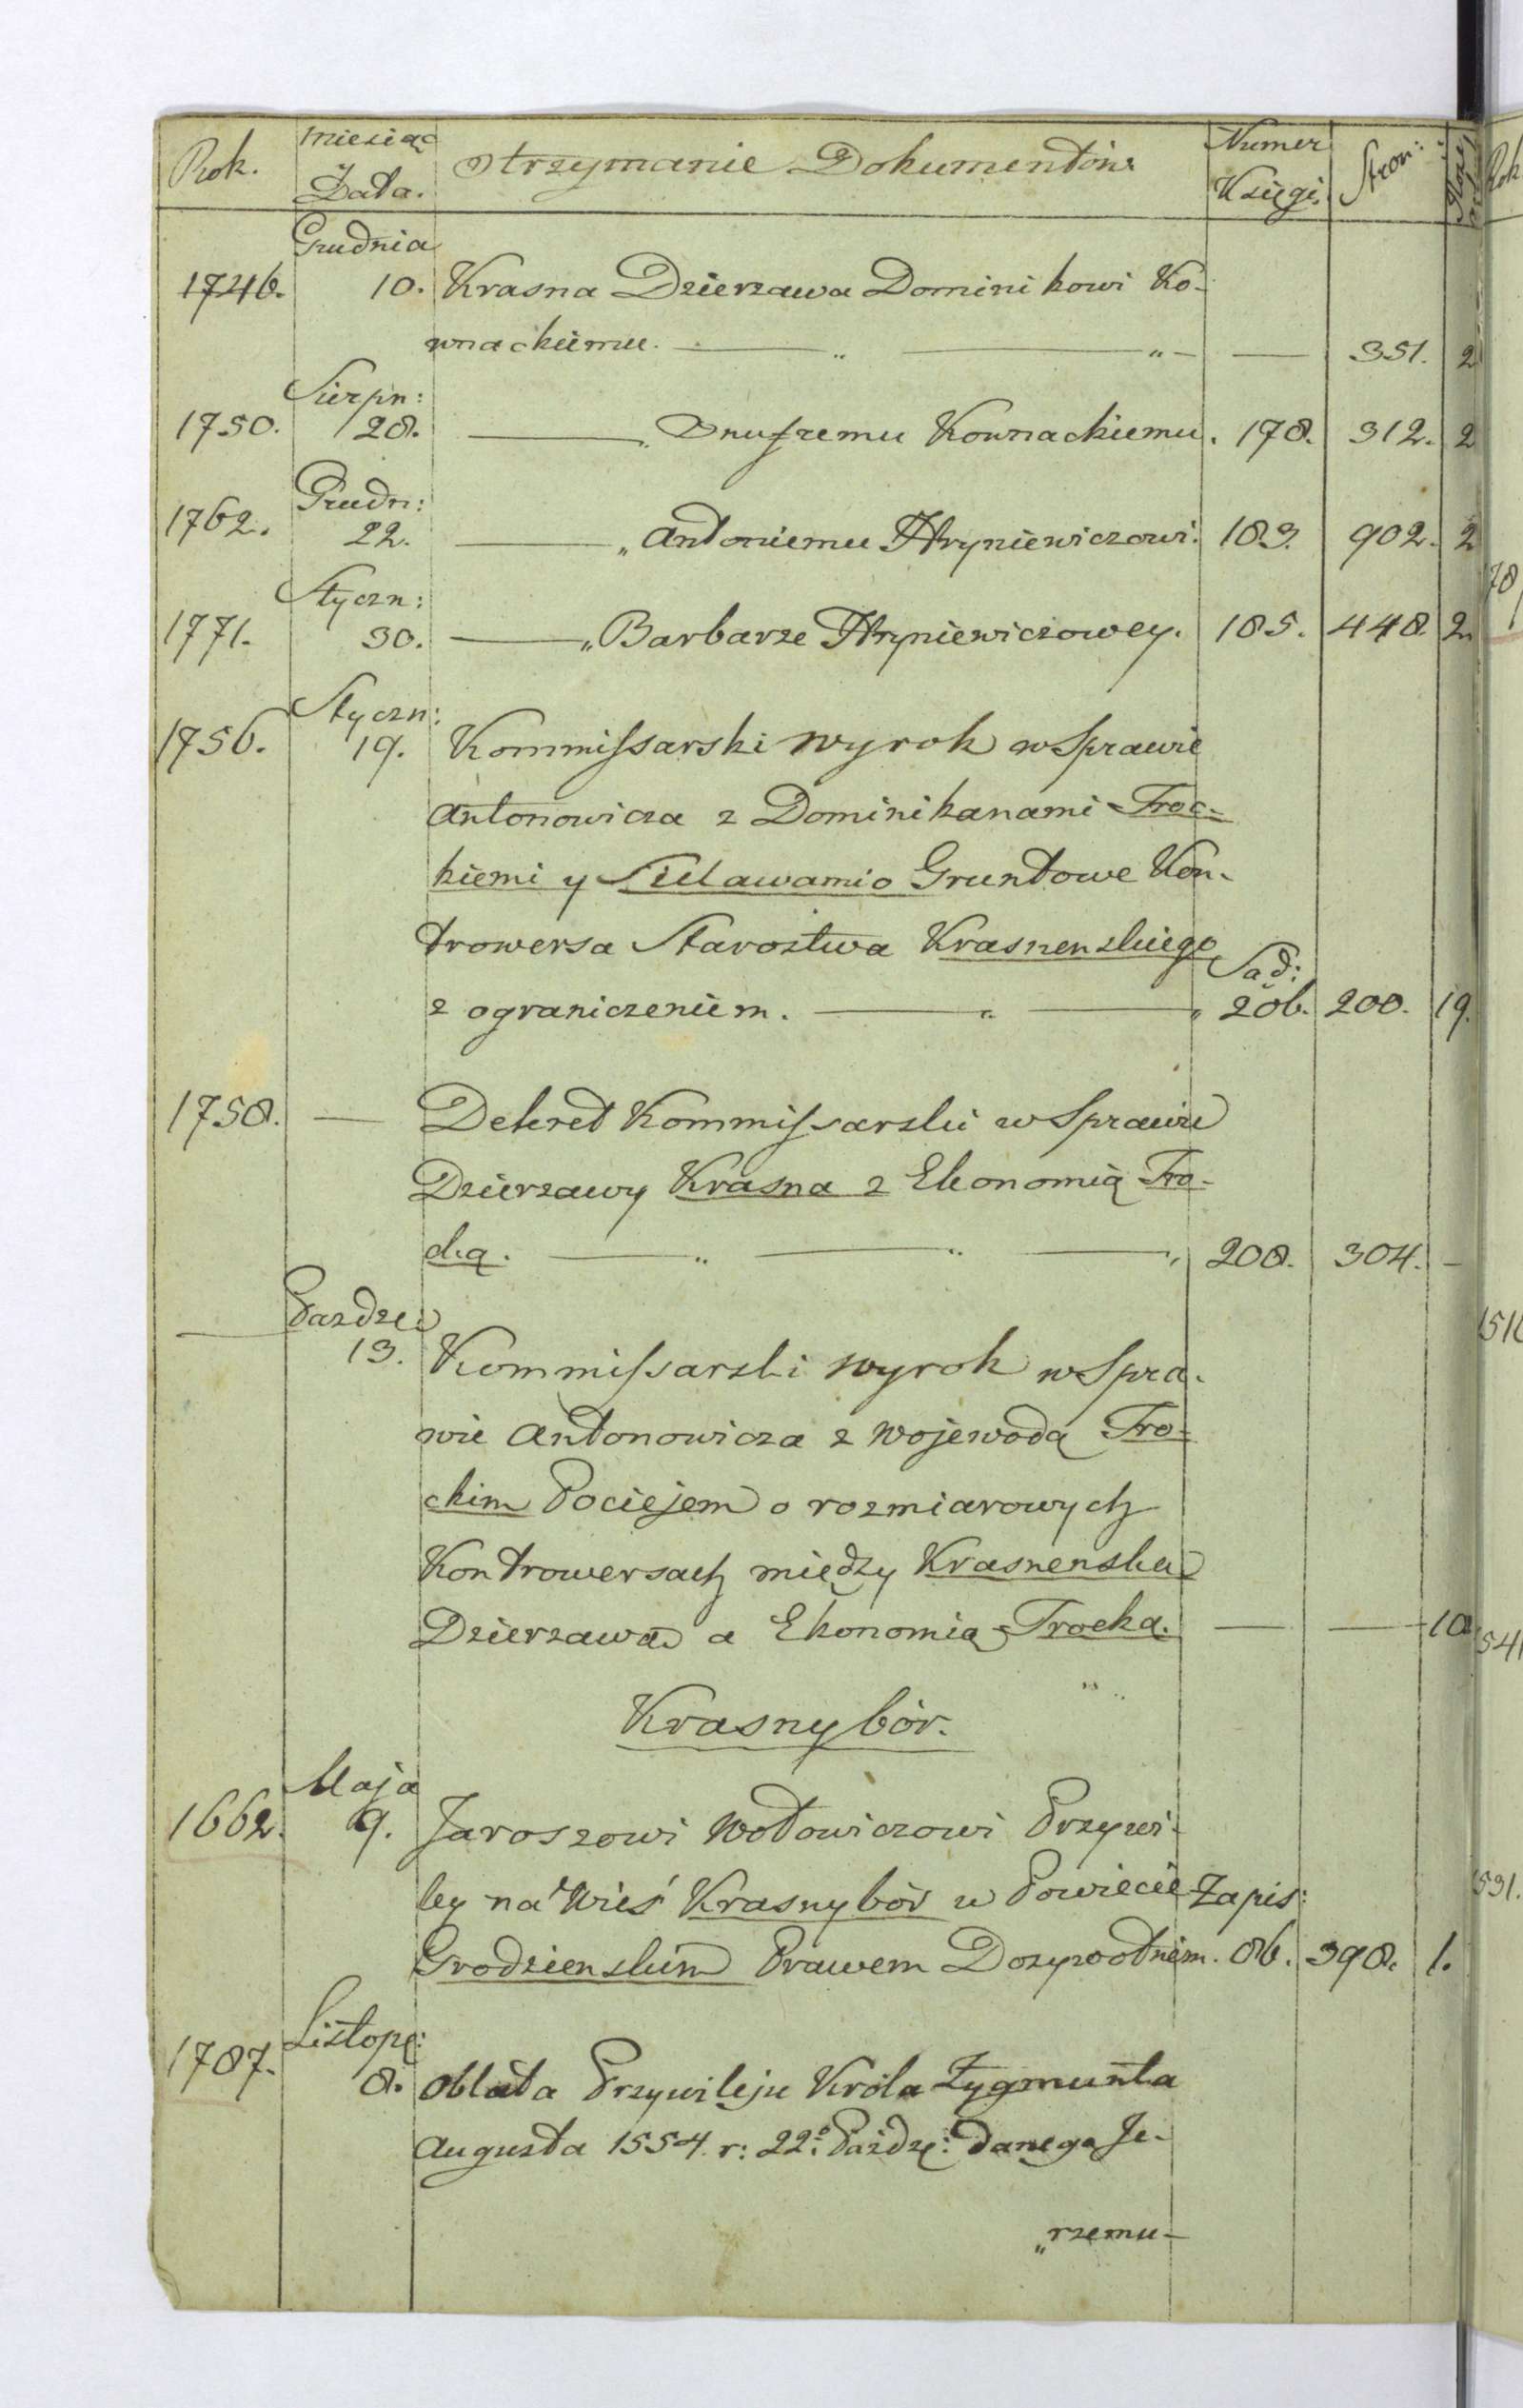 Rok. Miesiąc Data. Otrzymanie Dokumentów Numer Księgi. Stron:
Grudnia
1746. 10. Krasna Dzierzawa Dominikowi Ko-
wnackiemu. — „ — „ — — 351. 2
Sierpn:
1750. 28. — „ Onufremu Kownackiemu. 178. 312. 2
Grudn:
1762. 22. — „ Antoniemu Hryniewiczowi. 183. 902. 2
Styczn:
1771. 30. — „ Barbarze Hryniewiczowey. 185. 448. 2.
Styczn:
1756. 19. Kommissarski wyrok w Sprawie
Antonowicza z Dominikanami Troc-
kiemi y o Gruntowe Kon-
trowersa Starostwa Krasnenskiego
Sąd:
z ograniczeniem. — „ — „ 206. 200. 19.
1758. — Dekret Kommissarski w Sprawie
Dzierzawy Krasna z Ekonomią Tro-
cką. — „ — „ — „ 208. 304. —
Pazdze:
— 13. Kommissarski wyrok w Spra-
wie Antonowicza z Wojewodą Tro-
ckim Pociejem o rozmiarowych
Kontrowersach między Krasnenską
Dzierzawą a Ekonomią Trocką. — — 10
Krasnybór.
Maja
1662. 9. Jaroszowi Wołowiczowi Przywi-
ley na Wieś Krasnybór w Powiecie Zapis:
Grodzienskim Prawem Dozywotniem. 86. 398. 1.
Listop:
1787. 8. Oblata Przywileju Króla Zygmunta
Augusta 1554. r: 22º Paźdz: danego Je-
„rzemu-